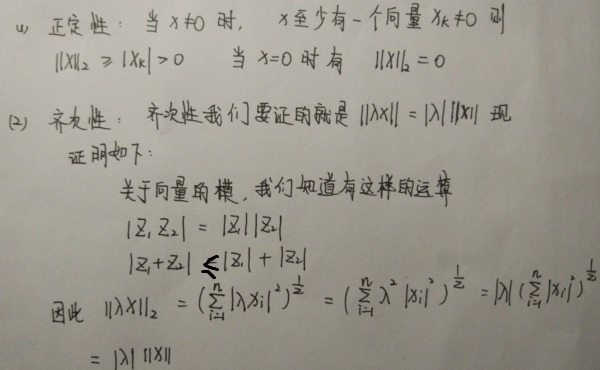 (1) 正定性: 当 x≠0 时, x至少有一个向量 Xₖ≠0 则
||X||₂ ≥ |Xₖ| > 0 当 x=0 时有 ||X||₂ = 0
(2) 齐次性: 齐次性我们要证的就是 ||λX|| = |λ| ||X|| 现
证明如下:
关于向量的模, 我们知道有这样的运算
|Z₁ Z₂| = |Z₁| |Z₂|
|Z₁+Z₂| ≤ |Z₁| + |Z₂|
因此 ||λX||₂ = (∑ᵢ₌₁ⁿ |λXᵢ|²)^½ = (∑ᵢ₌₁ⁿ λ² |Xᵢ|²)^½ = |λ| (∑ᵢ₌₁ⁿ |Xᵢ|²)^½
= |λ| ||X||